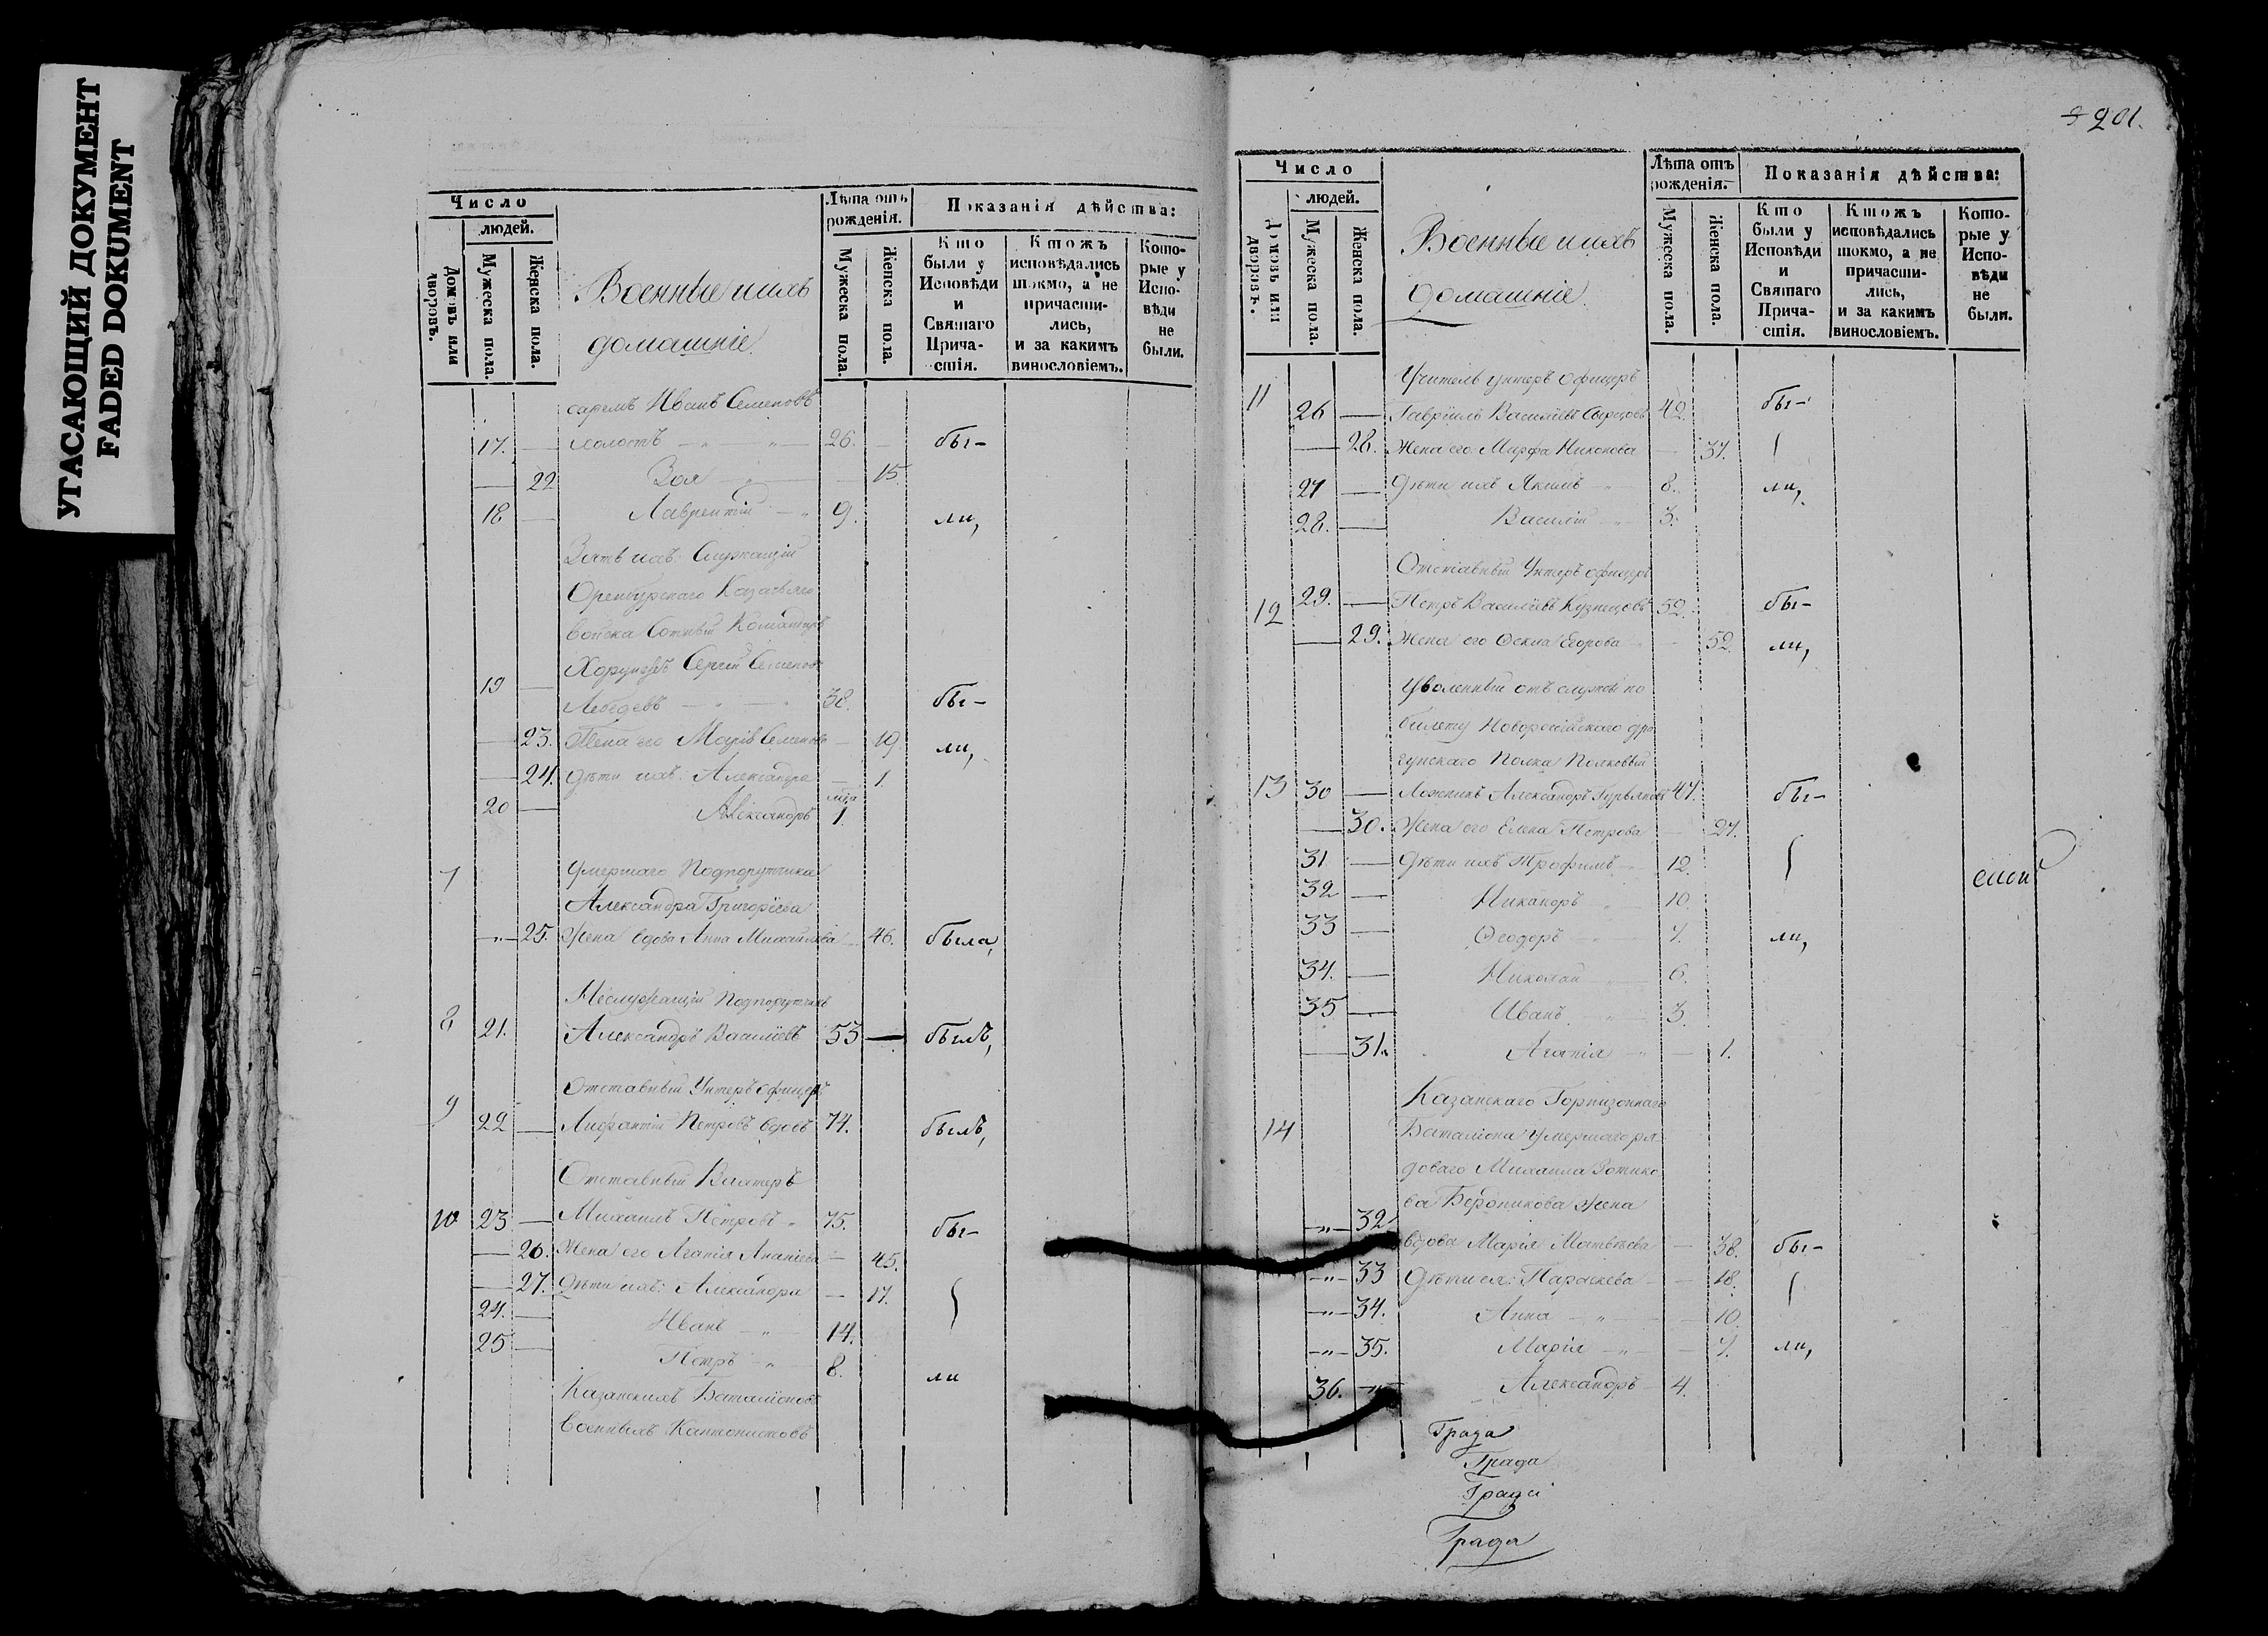 УГАСАЮЩИЙ ДОКУМЕНТ
FADED DOKUMENT
Число
людей.
Домовъ или дворовъ.
Мужеска пола.
Женска пола.
Военные и ихъ
домашніе.
Лѣта отъ рожденія.
Мужеска пола.
Женска пола.
Показанія дѣйства:
Кто были у Исповѣди и Святаго Прича-стія.
Ктожъ исповѣдались токмо, а не причасти-лись, и за какимъ винословіемъ.
Кото-рые у Испо-вѣди не были.
Иванъ Семеновъ
17. — холостъ — 26. — бы-
— 22 Зоя — 15.
18 — Лаврентій — 9. ли,
Зять ихъ: Служащій
Оренбургскаго Казачьяго
войска Сотный Командиръ
Хорунжій Сергій Семеновъ
19 — Лебедевъ — 38. бы-
— 23. Жена его Марія Семенова — 19 ли,
— 24. Дѣти ихъ: Александра — 1.
20 — Александръ 1.
7 Умершаго Подпорутчика
Александра Григоріева
— 25. Жена вдова Анна Михайлова 46. была,
Неслужащій Подпорутчикъ
8 21. Александръ Василіевъ 53 — былъ,
Отставный Унтеръ офицеръ
9 22 — Петровъ вдовъ 74. былъ,
Отставный Вахтеръ
10 23 — Михаилъ Петровъ 75. бы-
— 26. Жена его Агапія Ананіева — 45.
— 27. Дѣти ихъ: Александра — 17.
24. — Иванъ — 14.
25 — Петръ — 8. ли
Казанскихъ Баталіоновъ
Военныхъ Кантонистовъ
201.
Число
людей.
Домовъ или дворовъ.
Мужеска пола.
Женска пола.
Военные и ихъ
домашніе.
Лѣта отъ рожденія.
Мужеска пола.
Женска пола.
Показанія дѣйства:
Кто были у Исповѣди и Святаго Прича-стія.
Ктожъ исповѣдались токмо, а не причасти-лись, и за какимъ винословіемъ.
Кото-рые у Испо-вѣди не были.
11 Учитель унтеръ офицеръ
26 — Гавріилъ Василіевъ 42. бы-
— 28. Жена его Марфа Никонова — 37.
27 — Дѣти ихъ Якимъ — 8. ли,
28. — Василій — 3.
Отставный Унтеръ офицеръ
12 29. — Петръ Василіевъ Кузнецовъ 52. бы-
— 29. Жена его Ѳекла Егорова — 52. ли,
Уволенный отъ службы по
билету Новороссійскаго дра
гунскаго Полка Полковый
13 30 — Александръ 47. бы-
— 30. Жена его Елена Петрова — 27.
31 — Дѣти ихъ Трофимъ — 12.
32 — Никаноръ — 10.
33 — Ѳеодоръ — 7. ли,
34. — Николай — 6.
35 — Иванъ — 3.
— 31. Агапія — 1.
Казанскаго Горнизоннаго
14 Баталіона умершаго ря
доваго Михаила
жена
— 32 вдова Марія Матвѣева — 38. бы-
— 33 Дѣти ея: Параскева — 18.
— 34. Анна — 10.
— 35. Марія — 7. ли,
36. — Александръ — 4.
Града
Града
Града
Града